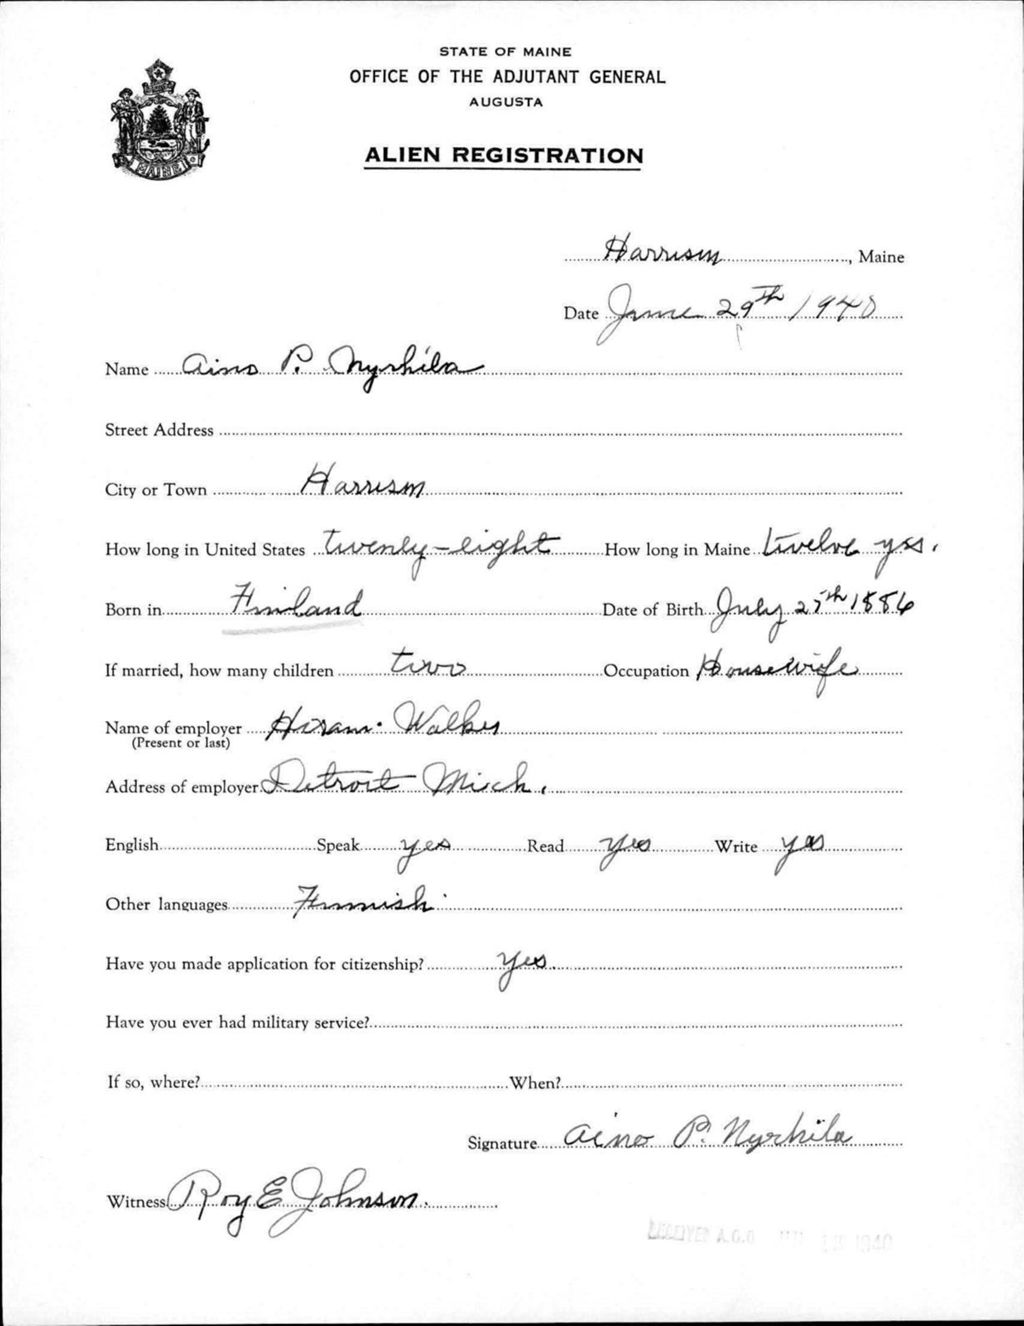 STATE OF MAINE
OFFICE OF THE ADJUTANT GENERAL
AUGUSTA
MAINE
ALIEN REGISTRATION
Harrison, Maine
Date June 29th 1940
Name Aino P. Nyrhila
Street Address
City or Town Harrison
How long in United States twenty-eight How long in Maine twelve yrs.
Born in Finland Date of Birth July 25th 1886
If married, how many children two Occupation Housewife
Name of employer Hiram Walker
(Present or last)
Address of employer Detroit Mich.
English Speak yes Read yes Write yes
Other languages Finnish
Have you made application for citizenship? Yes.
Have you ever had military service?
If so, where? When?
Signature Aino P. Nyrhila
Witness Roy E Johnson.
RECEIVED A.G.O 1940